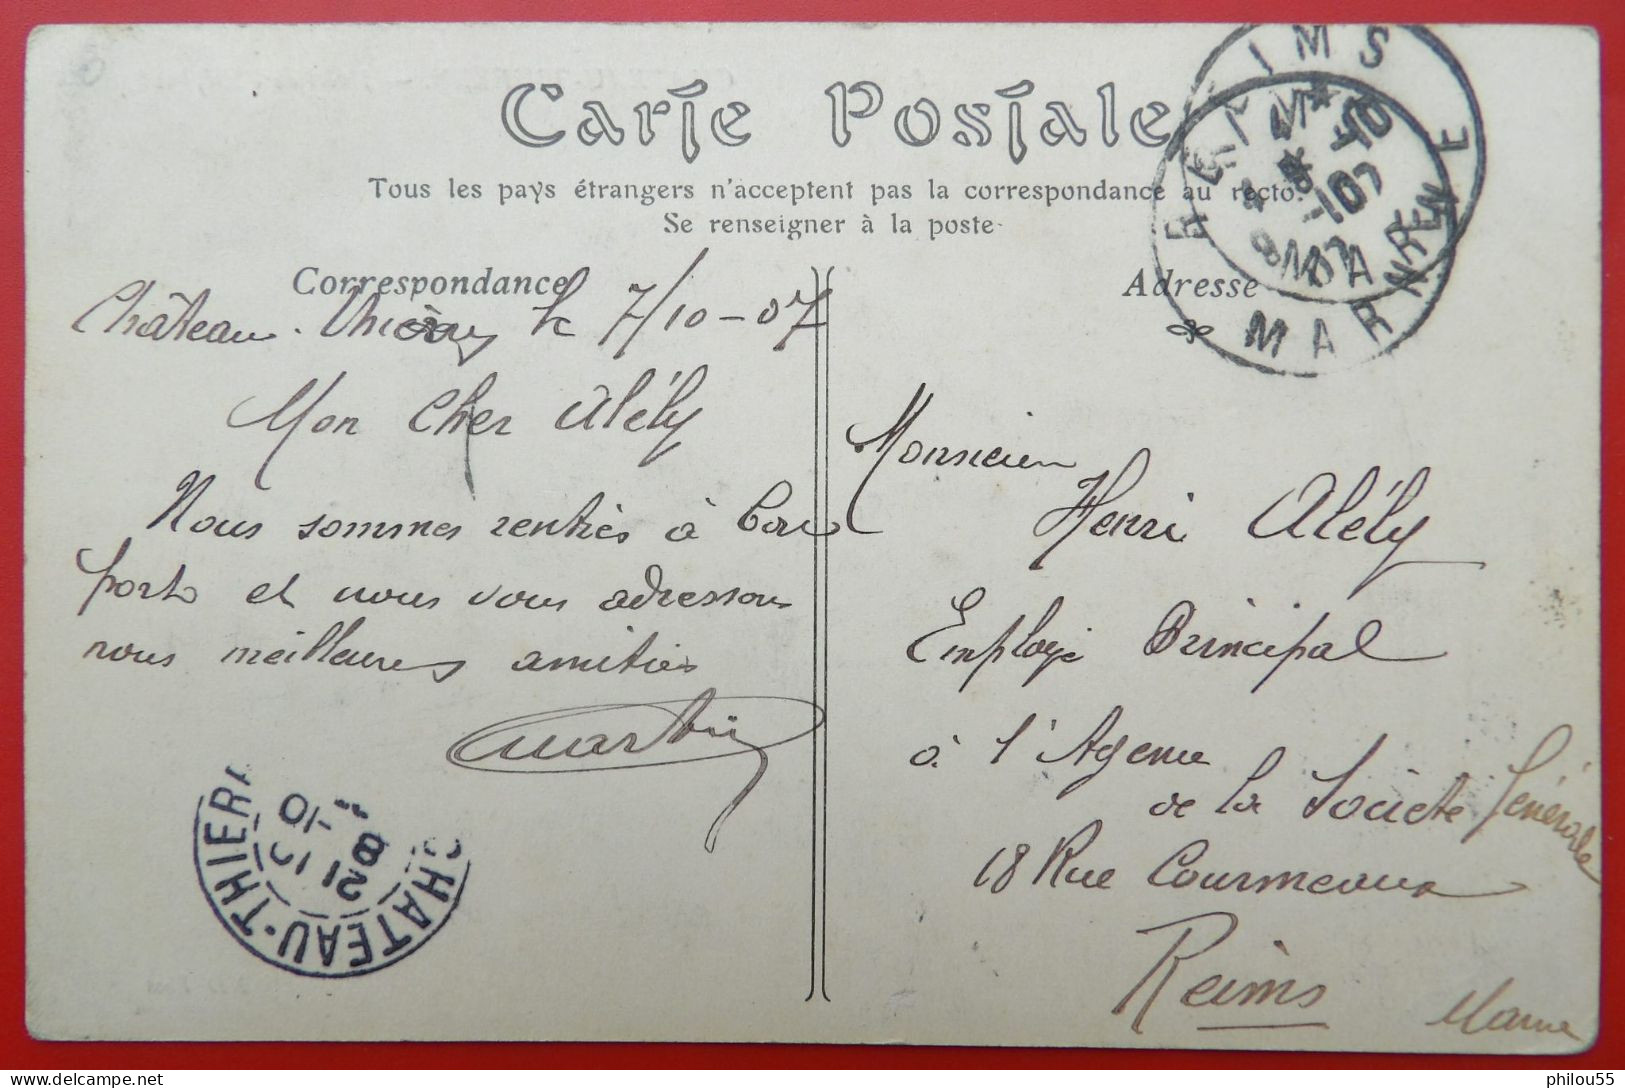 Carte Postale
Tous les pays étrangers n'acceptent pas la correspondance au recto.
Se renseigner à la poste
Correspondance
Château-Thierry le 7/10-07
Mon Cher Alély
Nous sommes rentrés à bon
port et nous vous adressons
nous meilleures amitiés
Martin
CHATEAU-THIER
Adresse
REIMS
MARNE
REIMS
MARNE
Monsieur
Henri Alély
Employé Principal
à l'Agence
de la Société Générale
18 Rue Courmeaux
Reims
Marne
delcampe.net
philou55